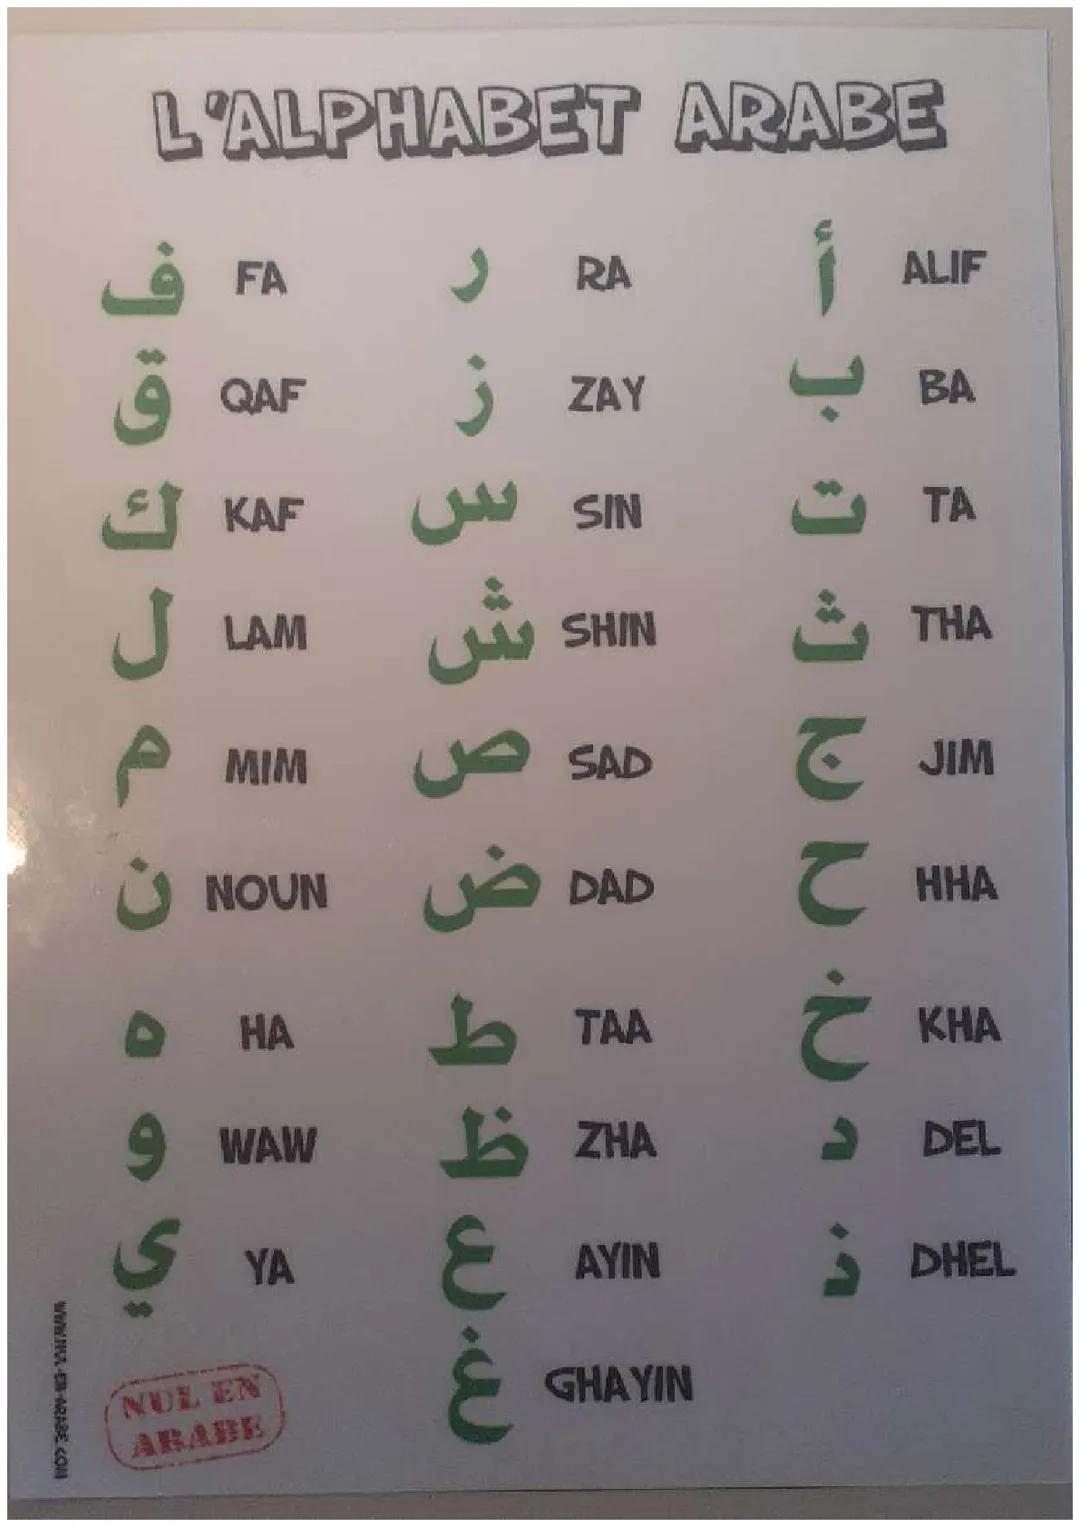 L'ALPHABET ARABE
أ ALIF
ب BA
ت TA
ث THA
ج JIM
ح HHA
خ KHA
د DEL
ذ DHEL
ر RA
ز ZAY
س SIN
ش SHIN
ص SAD
ض DAD
ط TAA
ظ ZHA
ع AYIN
غ GHAYIN
ف FA
ق QAF
ك KAF
ل LAM
م MIM
ن NOUN
ه HA
و WAW
ي YA
WWW.NUL-EN-ARABE.COM
NUL EN
ARABE